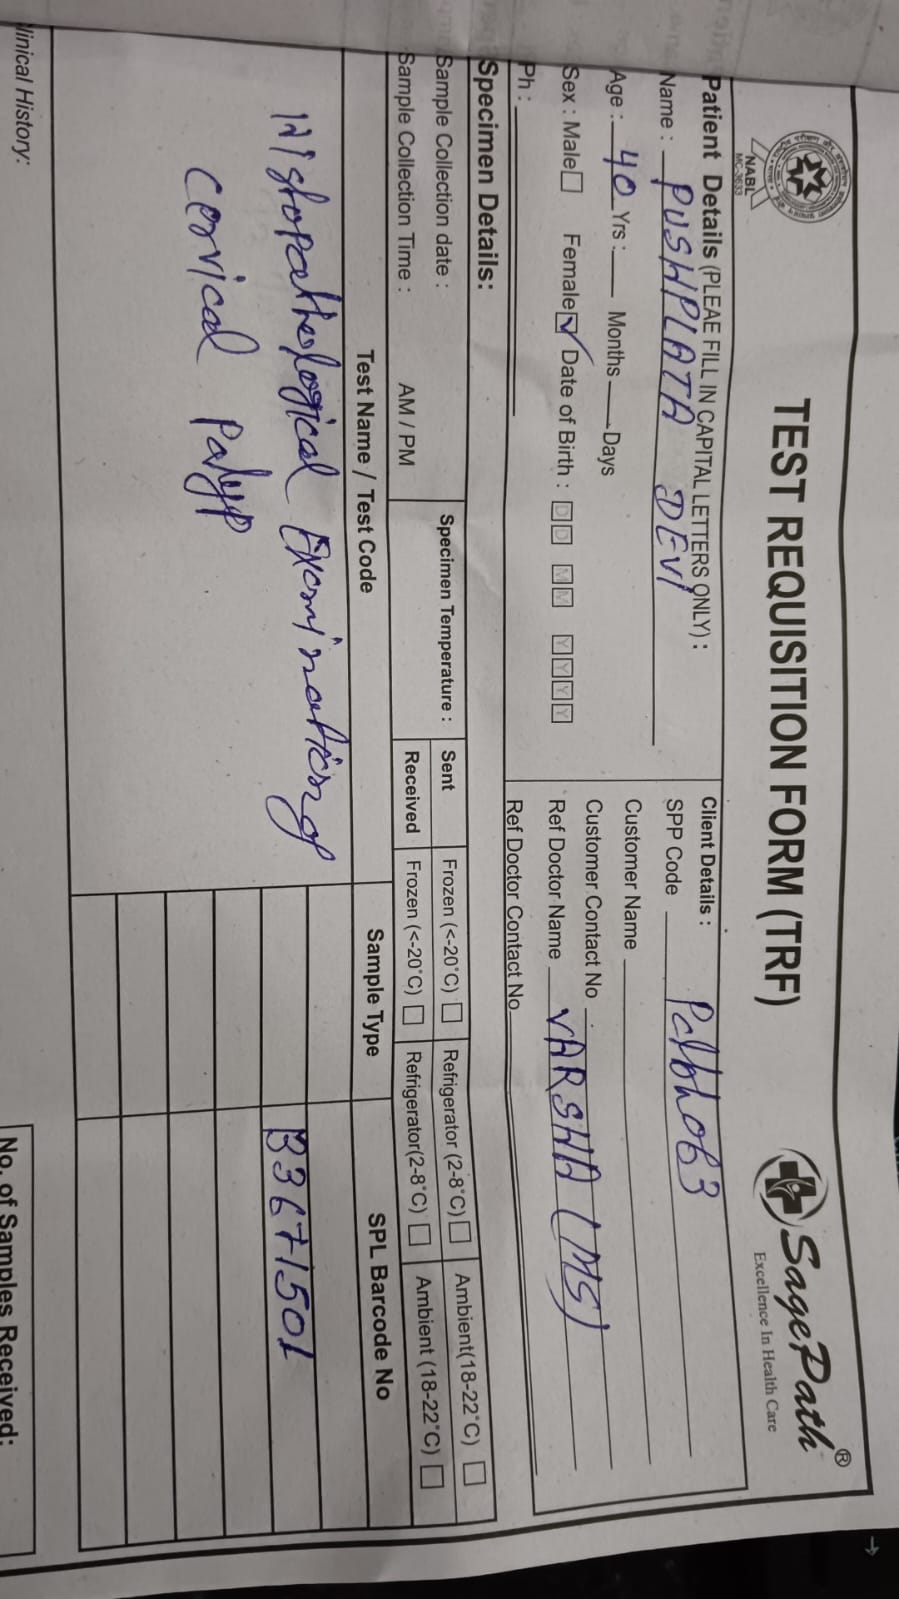 TEST REQUISITION FORM (TRF)
NABL
MC-3633
SagePath®
Excellence In Health Care
Patient Details (PLEAE FILL IN CAPITAL LETTERS ONLY) :
Name : PUSHPLATA DEVI
Age : 40 Yrs : Months Days
Sex : Male Female ✓ Date of Birth : DD MM YYYY
Ph :
Client Details :
SPP Code
Customer Name
Customer Contact No
Ref Doctor Name VARSHA (MS)
Ref Doctor Contact No
Specimen Details:
Sample Collection date :
Sample Collection Time : AM / PM
Specimen Temperature :
Sent Frozen (<-20°C) Refrigerator (2-8°C) Ambient(18-22°C)
Received Frozen (<-20°C) Refrigerator(2-8°C) Ambient (18-22°C)
Test Name / Test Code Sample Type SPL Barcode No
Histopathological Examination of B3671501
Cervical Polyp
linical History:
No. of Samples Received: